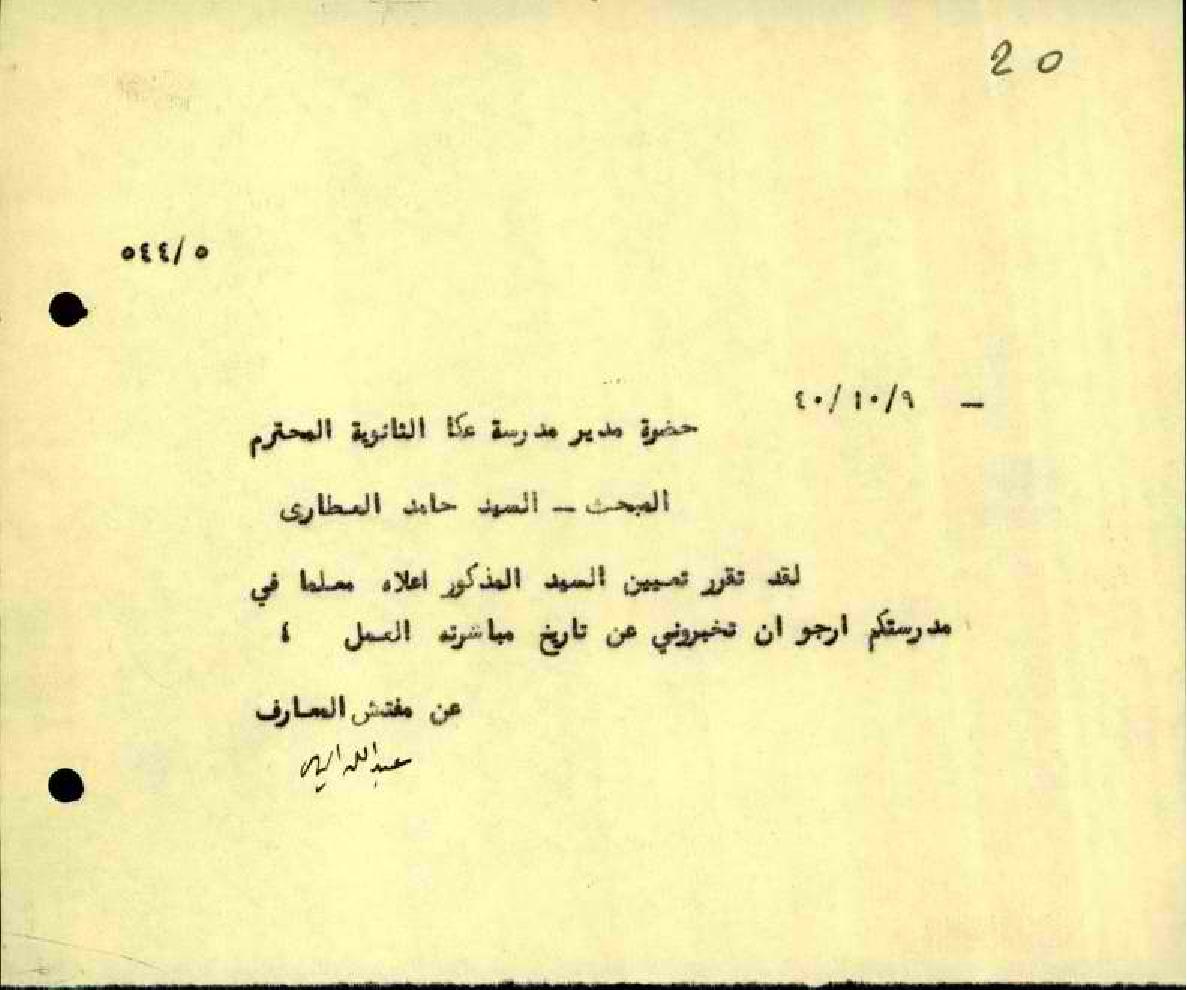 20
٥٤٤/٥
٤٠/١٠/٩ –
حضرة مدير مدرسة عكا الثانوية المحترم
المبحث – السيد حامد العطارى
لقد تقرر تعيين السيد المذكور اعلاه معلما في
مدرستكم ارجو ان تخبروني عن تاريخ مباشرته العمل ،
عن مفتش المعارف
عبدالله